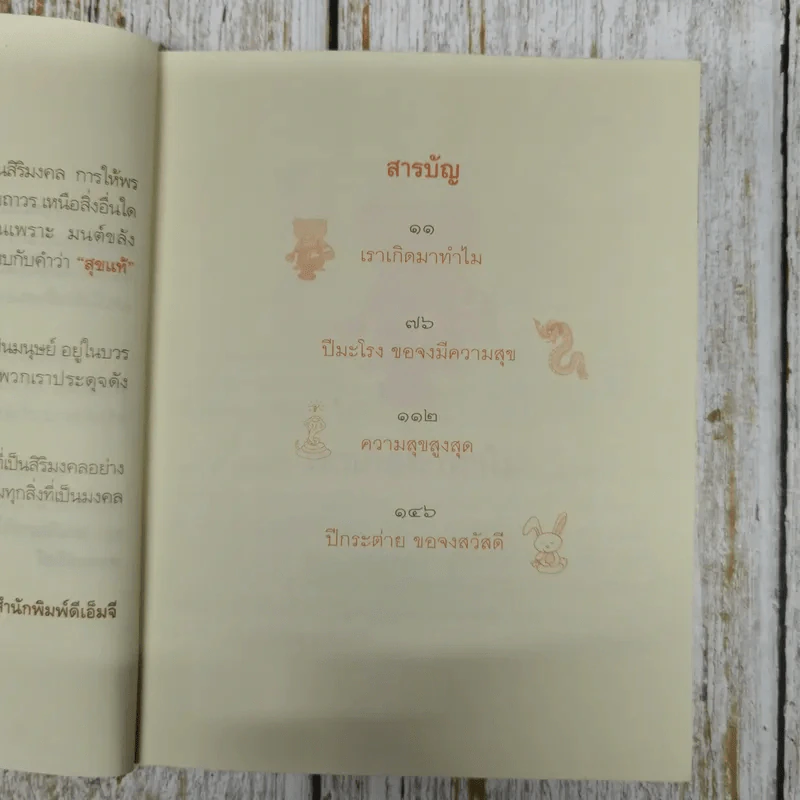 นสิริมงคล การให้พร
ถาวร เหนือสิ่งอื่นใด
นเพราะ มนต์ขลัง
บกับคำว่า "สุขแท้"
ป็นมนุษย์ อยู่ในบวร
พวกเราประดุจดัง
ที่เป็นสิริมงคลอย่าง
มทุกสิ่งที่เป็นมงคล
สำนักพิมพ์ดีเอ็มจี
สารบัญ
๑๑
เราเกิดมาทำไม
๗๖
ปีมะโรง ขอจงมีความสุข
๑๑๒
ความสุขสูงสุด
๑๔๖
ปีกระต่าย ขอจงสวัสดี